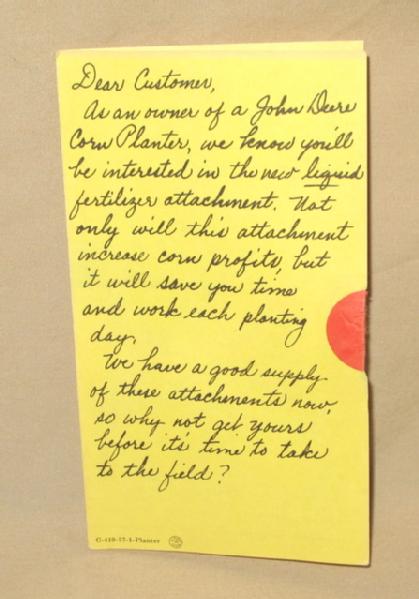 Dear Customer,
As an owner of a John Deere
Corn Planter, we know you'll
be interested in the new liquid
fertilizer attachment. Not
only will this attachment
increase corn profits, but
it will save you time
and work each planting
day.
We have a good supply
of these attachments now,
so why not get yours
before it's time to take
to the field?